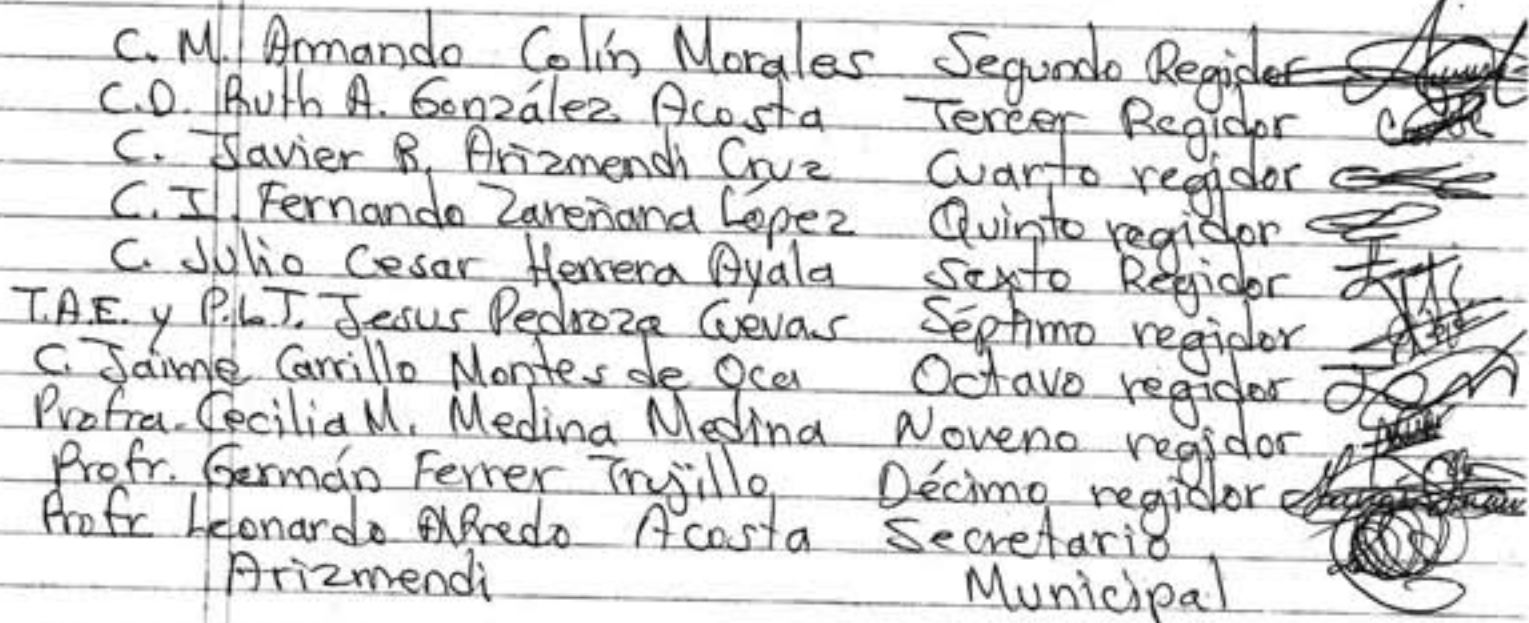 C. M. Armando Colín Morales Segundo Regidor
C.D. Ruth A. González Acosta Tercer Regidor
C. Javier R. Arizmendi Cruz Cuarto regidor
C. I. Fernando Zareñana López Quinto regidor
C. Julio Cesar Herrera Ayala Sexto Regidor
T.A.E. y P.L.J. Jesus Pedroza Cuevas Séptimo regidor
C. Jaime Carrillo Montes de Oca Octavo regidor
Profra. Cecilia M. Medina Medina Noveno regidor
Profr. Germán Ferrer Trujillo Décimo regidor
Profr Leonardo Alfredo Acosta Secretario
Arizmendi Municipal